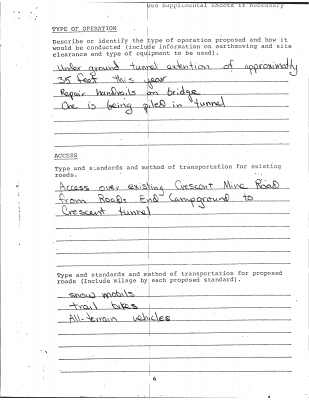 Use Supplemental Sheets if Necessary
TYPE OF OPERATION
Describe or identify the type of operation proposed and how it
would be conducted (include information on earthmoving and site
clearance and type of equipment to be used).
Under ground tunnel extention of approximatly
35 feet this year
Repair handrails on bridge
Ore is being piled in tunnel
ACCESS
Type and standards and method of transportation for existing
roads.
Access over existing Crescent Mine Road
from Roads End Campground to
Crescent tunnel
Type and standards and method of transportation for proposed
roads (Include milage by each proposed standard).
snow mobils
trail bikes
All-terrain vehicles
6